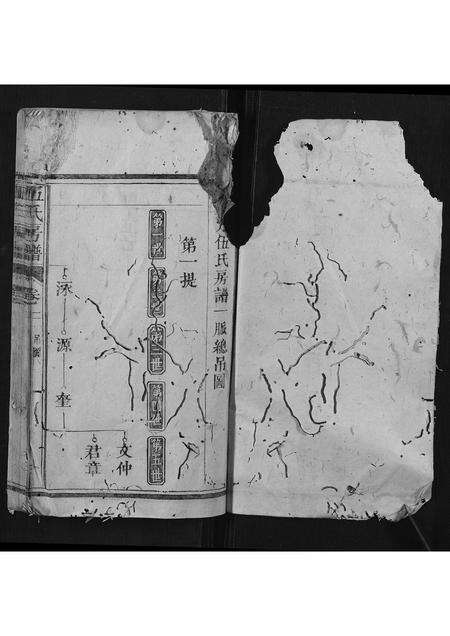 伍氏房譜一脈總吊圖
第一提
第一世
第三世
第四世
第五世
深
源
奎
文仲
君章
伍氏房譜
卷
吊圖